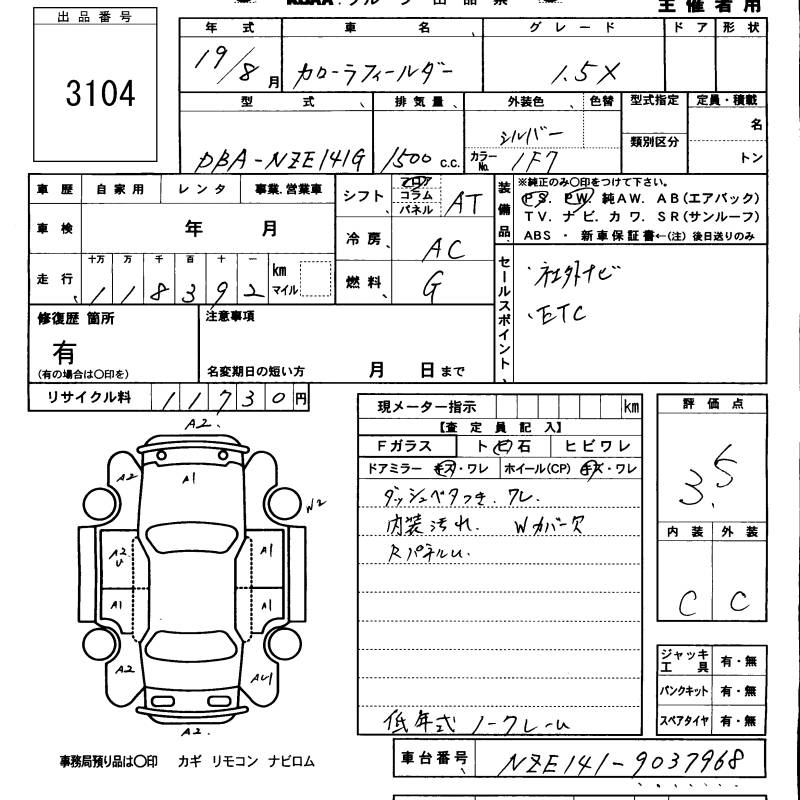 出品番号
3104
主催者用
年式 車名 グレード ドア 形状
19/8月 カローラフィールダー 1.5X
型式 排気量 外装色 色替 型式指定 定員・積載
類別区分 名
DBA-NZE141G 1500c.c. シルバー カラーNo. 1F7 トン
車歴 自家用 レンタ 事業.営業車
車検 年 月
走行 十万 万 千 百 十 一 km マイル
118392
シフト フロア コラム パネル AT
冷房 AC
燃料 G
装備品
※純正のみ○印をつけて下さい。
PS. PW. 純AW. AB(エアバック)
TV. ナビ. カワ. SR(サンルーフ)
ABS ・ 新車保証書←(注) 後日送りのみ
セールスポイント
・社外ナビ
・ETC
修復歴 箇所
有
(有の場合は○印を)
注意事項
名変期日の短い方 月 日まで
リサイクル料 11730円
A2.
A2 A1
W2
A2 U A1
A1 A1
A2 AU1
A2.
現メーター指示 km
【査定員記入】
Fガラス ト ヒ 石 ヒビワレ
ドアミラー キズ・ワレ ホイール(CP) キズ・ワレ
ダッシュベタつき. ワレ.
内装汚れ. Wカバー欠
RパネルU.
低年式 ノークレーム
評価点
3.5
内装 外装
C C
ジャッキ工具 有・無
パンクキット 有・無
スペアタイヤ 有・無
事務局預り品は○印 カギ リモコン ナビロム
車台番号 NZE141-9037968